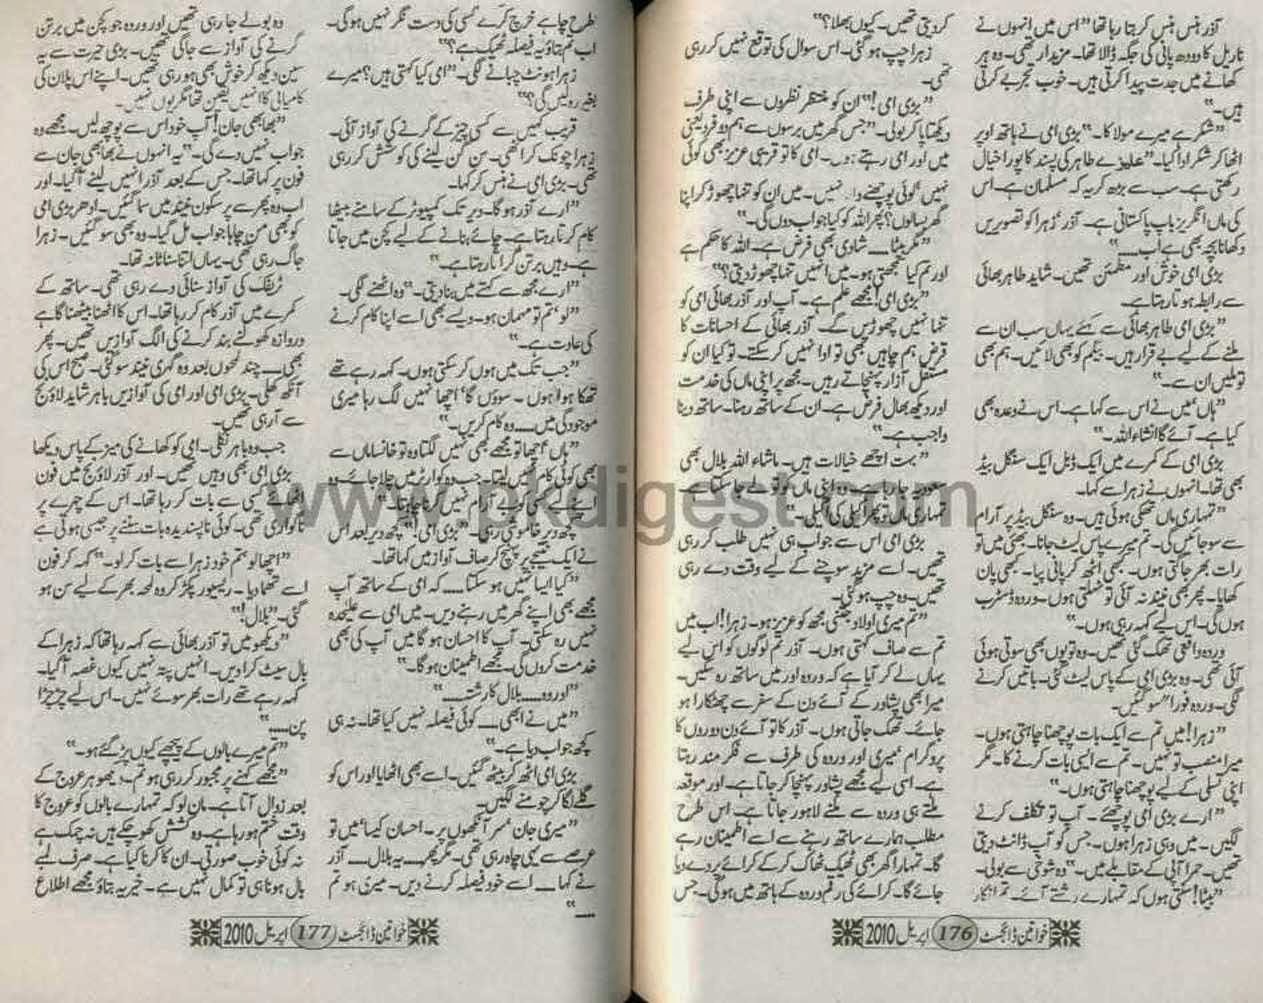 آذر ہنس ہنس کر بتا رہا تھا "اس میں انہوں نے
ناریل کا دودھ پانی کی جگہ ڈالا تھا۔ مزیدار تھی۔ وہ ہر
کھانے میں جدت پیدا کرتی ہیں۔ خوب تجربے کرتی
ہیں۔"
"شکر ہے میرے مولا کا۔" بڑی امی نے ہاتھ اوپر
اٹھا کر شکر ادا کیا۔ "علیزے طاہر کی پسند کا پورا خیال
رکھتی ہے۔ سب سے بڑھ کر یہ کہ مسلمان ہے۔ اس
کی ماں انگریز باپ پاکستانی ہے۔ آذر! زہرا کو تصویریں
دکھانا بچہ بھی ہے اب....."
بڑی امی خوش اور مطمئن تھیں۔ شاید طاہر بھائی
سے رابطہ ہوتا رہتا ہے۔
"بڑی امی طاہر بھائی سے کہئے یہاں سب ان سے
ملنے کے لیے بے قرار ہیں۔ بیگم کو بھی لائیں۔ ہم بھی
تو ملیں ان سے۔"
"ہاں میں نے اس سے کہا ہے۔ اس نے وعدہ بھی
کیا ہے۔ آئے گا انشاء اللہ۔"
بڑی امی کے کمرے میں ایک ڈبل ایک سنگل بیڈ
بھی تھا۔ انہوں نے زہرا سے کہا۔
"تمہاری ماں تھکی ہوئی ہیں۔ وہ سنگل بیڈ پر آرام
سے سو جائیں گی۔ تم میرے پاس لیٹ جانا۔ بھئی میں تو
رات بھر جاگتی ہوں۔ کبھی اٹھ کر پانی پیا۔ کبھی پان
کھایا۔ پھر بھی نیند نہ آئی تو ٹہلتی ہوں۔ وردہ ڈسٹرب
ہوں گی۔ اس لیے کہہ رہی ہوں۔"
وردہ واقعی تھک گئی تھیں۔ وہ تو یوں بھی سوتی ہوئی
آئی تھی۔ وہ بڑی امی کے پاس لیٹ گئی۔ باتیں کرنے
لگی۔ وردہ فورا" سو گئیں۔
"زہرا! میں تم سے ایک بات پوچھنا چاہتی ہوں۔
میرا منصب تو نہیں۔ تم سے ایسی بات کرنے کا۔ مگر
اپنی تسلی کے لیے پوچھنا چاہتی ہوں۔"
"ارے بڑی امی پوچھئے۔ آپ تو تکلف کرنے
لگیں۔ میں وہی زہرا ہوں۔ جس کو آپ ڈانٹ دیتی
تھیں۔ حمرا آپی کے مقابلے میں۔" وہ شوخی سے بولی۔
"بیٹا! سنتی ہوں کہ تمہارے رشتے آئے۔ تم انکار
کر دیتی تھیں۔ کیوں بھلا؟"
زہرا چپ ہو گئی۔ اس سوال کی توقع نہیں کر رہی
تھی۔
"بڑی امی!" ان کو منتظر نظروں سے اپنی طرف
دیکھتا پا کر بولی۔ "جس گھر میں برسوں سے ہم دو فرد یعنی
میں اور امی رہتے ہوں۔ امی کا تو قریبی عزیز بھی کوئی
نہیں۔ کوئی پوچھنے والا نہیں۔ میں ان کو تنہا چھوڑ کر اپنا
گھر بسالوں؟ پھر اللہ کو کیا جواب دوں گی۔"
"مگر بیٹا..... شادی بھی فرض ہے۔ اللہ کا حکم ہے
اور تم کیا سمجھتی ہو۔ میں انہیں تنہا چھوڑ دیتی؟"
"بڑی امی! مجھے علم ہے۔ آپ اور آذر بھائی امی کو
تنہا نہیں چھوڑیں گے۔ آذر بھائی کے احسانات کا
قرض ہم چاہیں بھی تو ادا نہیں کر سکتے۔ تو کیا ان کو
مستقل آزار پہنچاتے رہیں۔ مجھ پر اپنی ماں کی خدمت
اور دیکھ بھال فرض ہے۔ ان کے ساتھ رہنا۔ ساتھ دینا
واجب ہے۔"
"بہت اچھے خیالات ہیں۔ ماشاء اللہ بلال بھی
سعودیہ جا رہا ہے۔ وہ اپنی ماں کو تو لے جا سکتا ہے۔
تمہاری ماں تو پھر اکیلی کی اکیلی۔"
بڑی امی اس سے جواب ہی نہیں طلب کر رہی
تھیں۔ اسے مزید سوچنے کے لیے وقت دے رہی
تھیں۔ وہ چپ ہو گئی۔
"تم میری اولاد جتنی مجھ کو عزیز ہو۔ زہرا! اب میں
تم سے صاف کہتی ہوں۔ آذر تم لوگوں کو اس لیے
یہاں لے کر آیا ہے کہ وردہ اور میں ساتھ رہ سکیں۔
میرا بھی پشاور کے آئے دن کے سفر سے چھٹکارا ہو
جائے۔ تھک جاتی ہوں۔ آذر کا تو آئے دن دوروں کا
پروگرام، میری اور وردہ کی طرف سے فکر مند رہتا
ہے۔ اسی لیے مجھے پشاور پہنچا کر جاتا ہے۔ اور موقعہ
ملتے ہی وردہ سے ملنے لاہور جاتا ہے۔ اس طرح
مطلب ہمارے ساتھ رہنے سے اسے اطمینان رہے
گا۔ تمہارا گھر بھی ٹھیک ٹھاک کر کے کرائے پر دے دیا
جائے گا۔ کرائے کی رقم وردہ کے ہاتھ میں ہوگی۔ جس
خواتین ڈائجسٹ 176 اپریل 2010
طرح چاہے خرچ کرے، کسی کی دست نگر نہیں ہوگی۔
اب تم بتاؤ یہ فیصلہ ٹھیک ہے؟"
زہرا ہونٹ چبانے لگی۔ "امی کیا کہتی ہیں؟ میرے
بغیر رہ لیں گی؟"
قریب کہیں سے کسی چیز کے گرنے کی آواز آئی۔
زہرا چونک کر اٹھی۔ سن گن لینے کی کوشش کر رہی
تھی۔ بڑی امی نے ہنس کر کہا۔
"ارے آذر ہوگا۔ دیر تک کمپیوٹر کے سامنے بیٹھا
کام کرتا رہتا ہے۔ چائے بنانے کے لیے کچن میں جاتا
ہے۔ وہیں برتن گراتا رہتا ہے۔"
"ارے مجھ سے کہتے میں بنا دیتی۔" وہ اٹھنے لگی۔
"لو، تم تو مہمان ہو۔ ویسے بھی اسے اپنا کام کرنے
کی عادت ہے۔"
"جب تک میں ہوں کر سکتی ہوں۔ کہہ رہے تھے
تھکا ہوا ہوں۔ سوؤں گا، اچھا نہیں لگ رہا میری
موجودگی میں..... وہ کام کریں۔"
"ہاں، اچھا تو مجھے بھی نہیں لگتا وہ تو خانساماں سے
بھی کوئی کام نہیں لیتا۔ جب وہ کوارٹر میں چلا جائے۔ وہ
اپنے لیے کسی کو بے آرام نہیں کرنا چاہتا۔"
کچھ دیر خاموشی رہی۔ "بڑی امی!" کچھ دیر بعد اس
نے ایک نتیجے پر پہنچ کر صاف آواز میں کہا تھا۔
"کیا ایسا نہیں ہو سکتا..... کہ امی کے ساتھ آپ
مجھے بھی اپنے گھر میں رہنے دیں۔ میں امی سے علیحدہ
نہیں رہ سکتی۔ آپ کا احسان ہوگا میں آپ کی بھی
خدمت کروں گی۔ مجھے اطمینان ہوگا۔"
"اور وہ..... بلال کا رشتہ....."
"میں نے ابھی..... کوئی فیصلہ نہیں کیا تھا۔ نہ ہی
کچھ جواب دیا ہے۔"
بڑی امی اٹھ کر بیٹھ گئیں۔ اسے بھی اٹھایا اور اس کو
گلے لگا کر چومنے لگیں۔
"میری جان، سر آنکھوں پر۔ احسان کیسا، میں تو
عرصے سے یہی چاہ رہی تھی۔ مگر پھر..... یہ بلال..... آذر
نے کہا..... اسے خود فیصلہ کرنے دیں۔ میری ہو تم
....."
وہ بولے جا رہی تھیں اور وردہ جو کچن میں برتن
گرنے کی آواز سے جاگی تھیں۔ بڑی حیرت سے یہ
سین دیکھ کر خوش بھی ہو رہی تھیں۔ اپنے اس پلان کی
کامیابی کا انہیں یقین تھا مگر یوں نہیں۔
"بھابھی جان! آپ خود اس سے پوچھ لیں۔ مجھے وہ
جواب نہیں دے گی۔" یہ انہوں نے بھابھی جان سے
فون پر کہا تھا۔ جس کے بعد آذر انہیں لینے آ گیا۔ اور
اب وہ پھر سے پر سکون نیند میں سما گئیں۔ ادھر بڑی امی
کو بھی من چاہا جواب مل گیا۔ وہ بھی سو گئیں۔ زہرا
جاگ رہی تھی۔ یہاں اتنا سناٹا نہ تھا۔
ٹریفک کی آواز سنائی دے رہی تھی۔ ساتھ کے
کمرے میں آذر کام کر رہا تھا۔ اس کا اٹھنا بیٹھنا گاہے
دروازہ کھولنے بند کرنے کی الگ آوازیں تھیں۔ پھر
بھی..... چند لمحوں بعد وہ گہری نیند سو گئی۔ صبح اس کی
آنکھ کھلی۔ بڑی امی اور امی کی آوازیں باہر شاید لاؤنج
سے آ رہی تھیں۔
جب وہ باہر نکلی۔ امی کو کھانے کی میز کے پاس دیکھا
بڑی امی بھی وہیں تھیں۔ اور آذر لاؤنج میں فون
اٹھائے کسی سے بات کر رہا تھا۔ اس کے چہرے پر
ناگواری تھی۔ کوئی ناپسندیدہ بات سننے پر جیسی ہوتی ہے
"اچھا لو، تم خود زہرا سے بات کر لو۔" کہہ کر فون
اسے تھما دیا۔ ریسیور پکڑ کر وہ لمحہ بھر کے لیے سن ہو
گئی۔ "بلال!"
"دیکھو میں تو آذر بھائی سے کہہ رہا تھا کہ زہرا کے
بال سیٹ کرا دیں۔ انہیں پتہ نہیں کیوں غصہ آ گیا۔
کہہ رہے تھے رات بھر سوئے نہیں۔ اس لیے چڑچڑا
پن....."
"تم میرے بالوں کے پیچھے کیوں پڑ گئے ہو۔"
"مجھے کہنے پر مجبور کر رہی ہو تم۔ دیکھو ہر عروج کے
بعد زوال آتا ہے۔ مان لو کہ تمہارے بالوں کو عروج کا
وقت ختم ہو رہا ہے۔ وہ کشش کھو چکے ہیں نہ چمک ہے
نہ کوئی خوب صورتی۔ ان کا کرنا کیا ہے۔ صرف لمبے
بال ہونا ہی تو کمال نہیں ہے۔ خیر یہ بتاؤ مجھے اطلاع
خواتین ڈائجسٹ 177 اپریل 2010
www.pkdigest.com